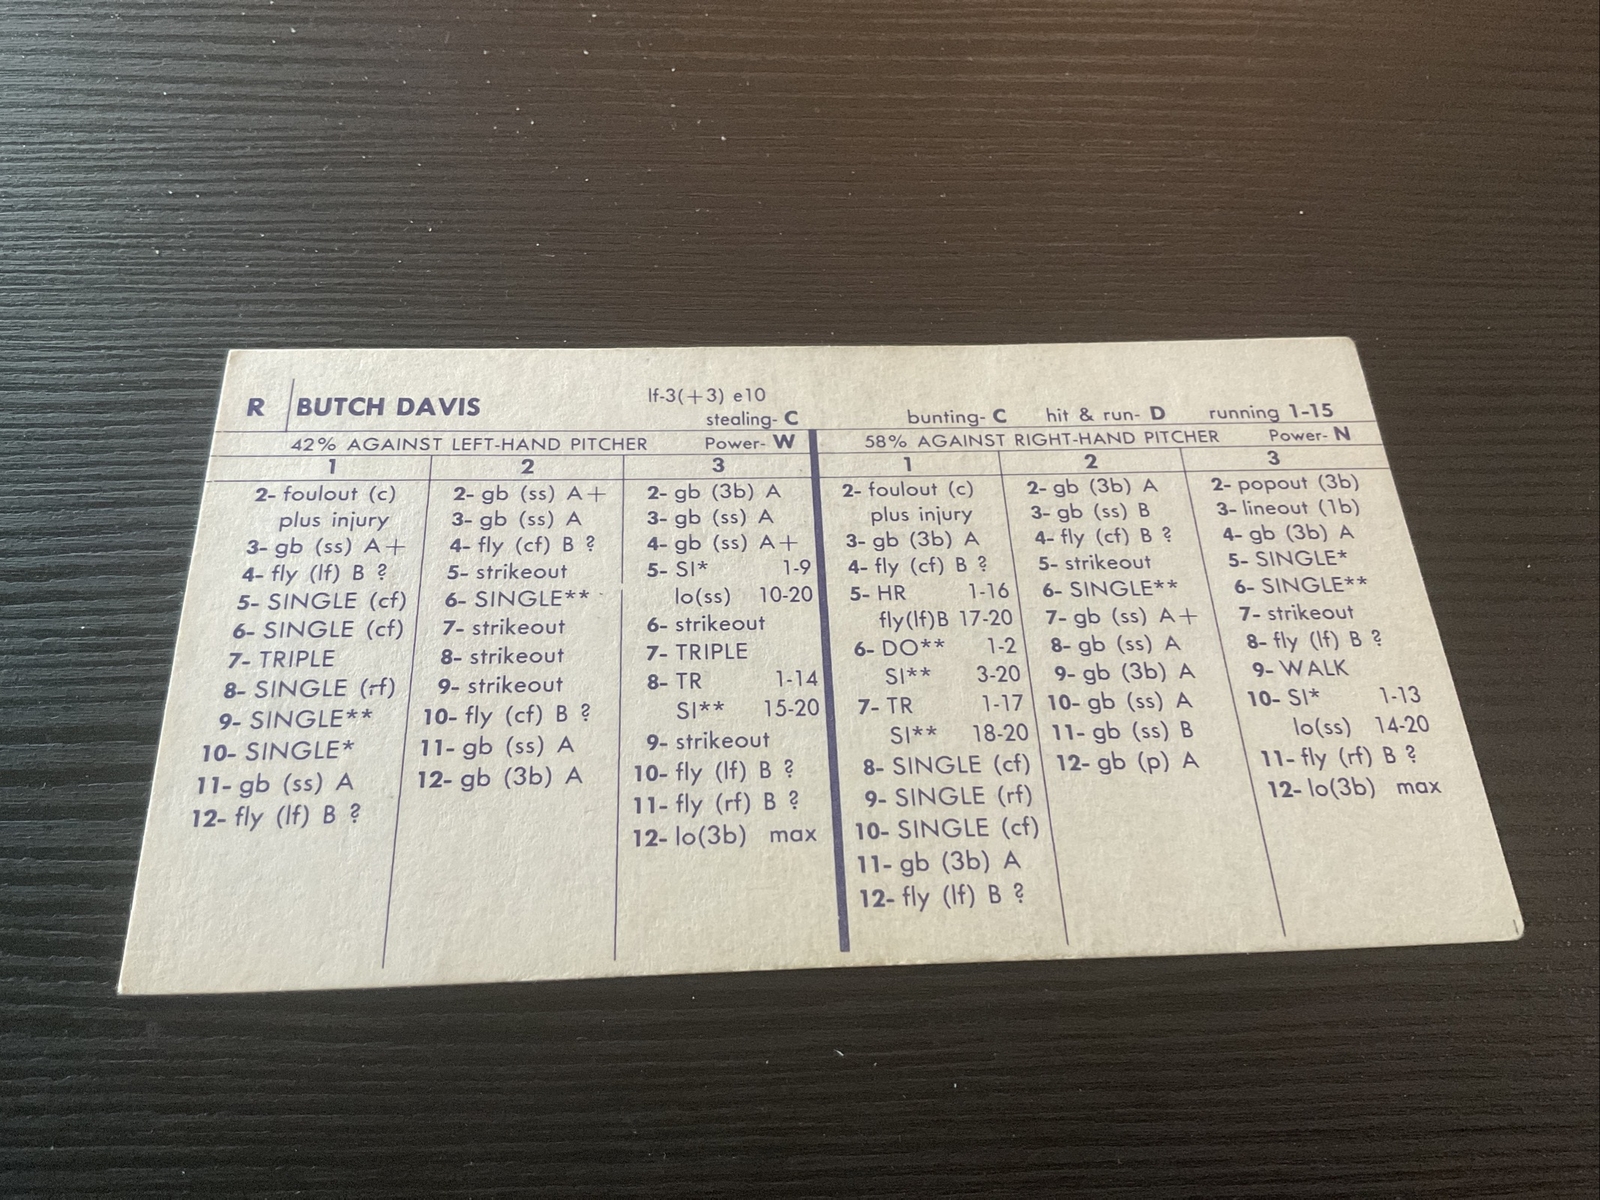 R BUTCH DAVIS lf-3(+3) e10
stealing- C bunting- C hit & run- D running 1-15
42% AGAINST LEFT-HAND PITCHER Power- W
1 2 3
2- foulout (c)
plus injury
3- gb (ss) A+
4- fly (lf) B ?
5- SINGLE (cf)
6- SINGLE (cf)
7- TRIPLE
8- SINGLE (rf)
9- SINGLE**
10- SINGLE*
11- gb (ss) A
12- fly (lf) B ?
2- gb (ss) A+
3- gb (ss) A
4- fly (cf) B ?
5- strikeout
6- SINGLE**
7- strikeout
8- strikeout
9- strikeout
10- fly (cf) B ?
11- gb (ss) A
12- gb (3b) A
2- gb (3b) A
3- gb (ss) A
4- gb (ss) A+
5- SI* 1-9
lo(ss) 10-20
6- strikeout
7- TRIPLE
8- TR 1-14
SI** 15-20
9- strikeout
10- fly (lf) B ?
11- fly (rf) B ?
12- lo(3b) max
58% AGAINST RIGHT-HAND PITCHER Power- N
1 2 3
2- foulout (c)
plus injury
3- gb (3b) A
4- fly (cf) B ?
5- HR 1-16
fly(lf)B 17-20
6- DO** 1-2
SI** 3-20
7- TR 1-17
SI** 18-20
8- SINGLE (cf)
9- SINGLE (rf)
10- SINGLE (cf)
11- gb (3b) A
12- fly (lf) B ?
2- gb (3b) A
3- gb (ss) B
4- fly (cf) B ?
5- strikeout
6- SINGLE**
7- gb (ss) A+
8- gb (ss) A
9- gb (3b) A
10- gb (ss) A
11- gb (ss) B
12- gb (p) A
2- popout (3b)
3- lineout (1b)
4- gb (3b) A
5- SINGLE*
6- SINGLE**
7- strikeout
8- fly (lf) B ?
9- WALK
10- SI* 1-13
lo(ss) 14-20
11- fly (rf) B ?
12- lo(3b) max